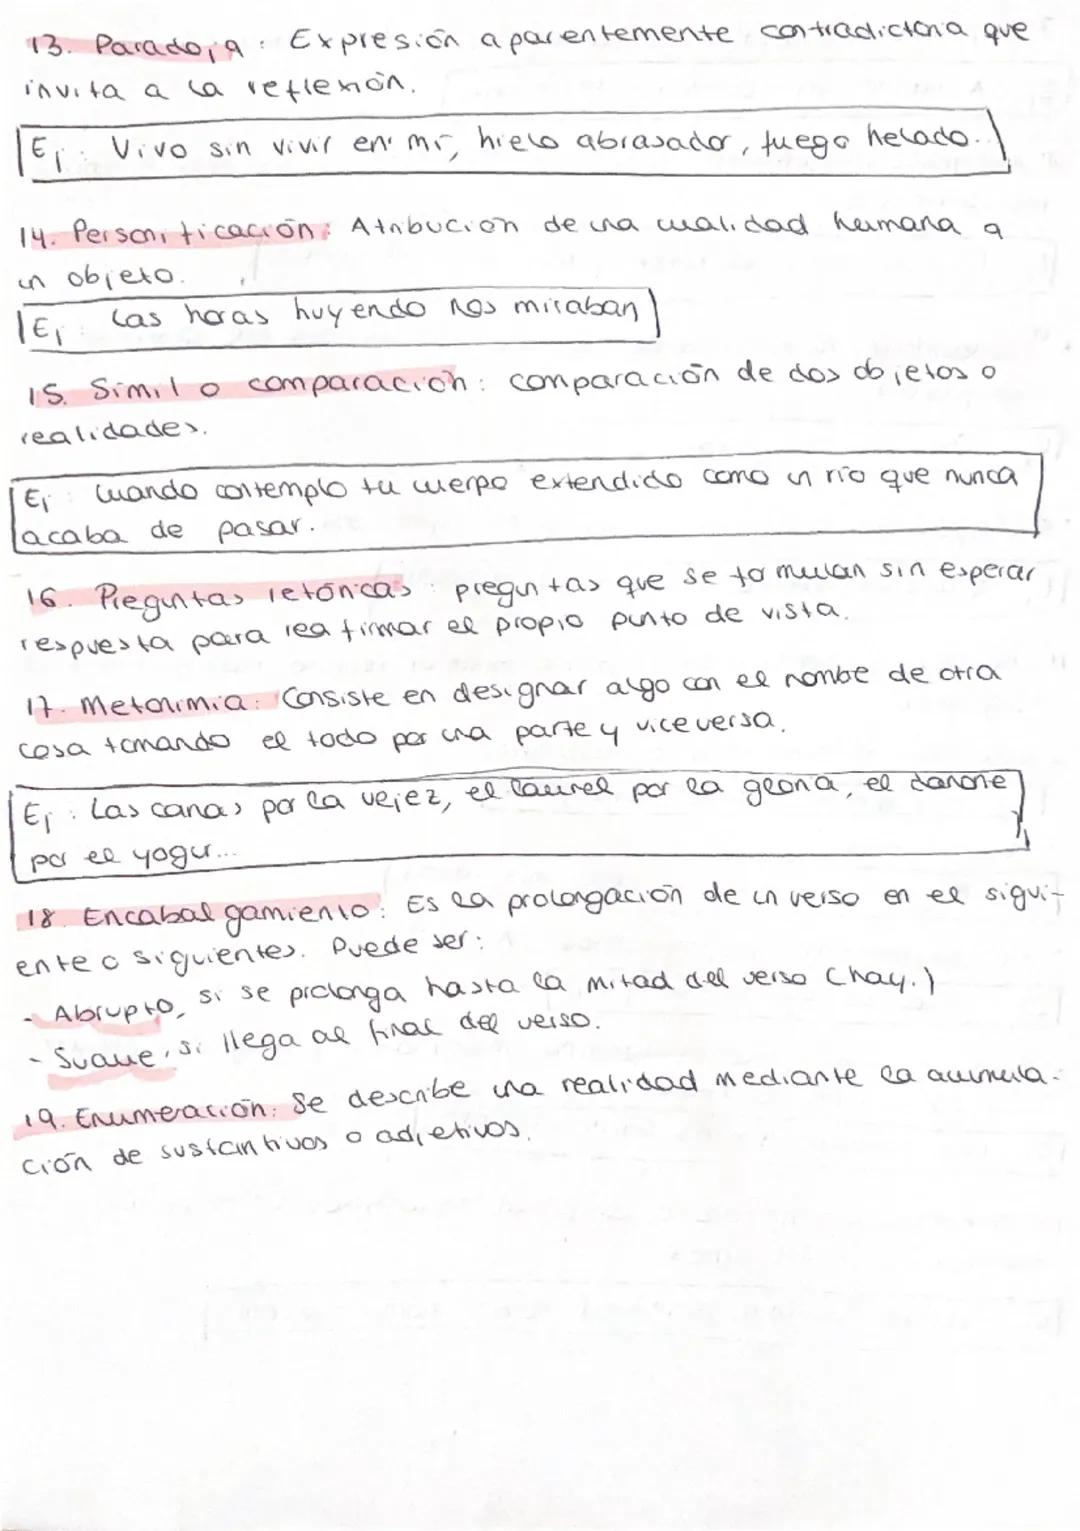 13. Paradoja: Expresión aparentemente contradictoria que
invita a la reflexión.
Ej: Vivo sin vivir en mí, hielo abrasador, fuego helado..
14. Personificación: Atribución de una cualidad humana a
un objeto.
Ej: Las horas huyendo nos miraban
15. Símil o comparación: comparación de dos objetos o
realidades.
Ej: Cuando contemplo tu cuerpo extendido como un río que nunca
acaba de pasar.
16. Preguntas retóricas: preguntas que se formulan sin esperar
respuesta para reafirmar el propio punto de vista.
17. Metonimia: Consiste en designar algo con el nombre de otra
cosa tomando el todo por una parte y viceversa.
Ej: Las canas por la vejez, el laurel por la gloria, el danone
por el yogur...
18. Encabalgamiento: Es la prolongación de un verso en el sigui-
ente o siguientes. Puede ser:
- Abrupto, si se prolonga hasta la mitad del verso (hay.)
- Suave, si llega al final del verso.
19. Enumeración: Se describe una realidad mediante la acumula-
ción de sustantivos o adjetivos.